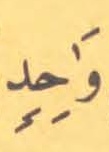 وَاحِدٍ